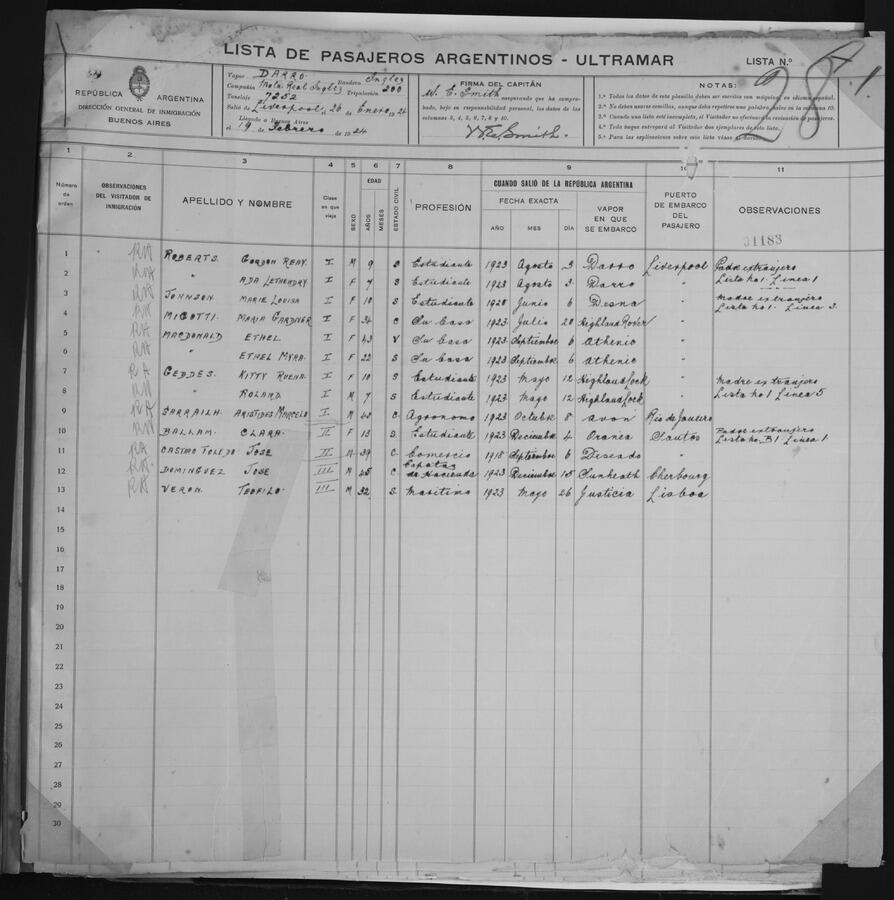 LISTA DE PASAJEROS ARGENTINOS - ULTRAMAR
LISTA N.º 1
28
REPÚBLICA ARGENTINA
DIRECCIÓN GENERAL DE INMIGRACIÓN
BUENOS AIRES
Vapor DARRO Bandera Inglez
Compañía Mala Real Inglez Tripulación 200
Tonelaje 7252
Salió de Liverpool el 26 de Enero 1924
Llegado a Buenos Aires
el 19 de Febrero de 1924
FIRMA DEL CAPITÁN
W. E. Smith asegurando que ha comprobado, bajo su responsabilidad personal, los datos de las columnas 3, 4, 5, 6, 7, 8 y 10.
NOTAS:
1.º Todos los datos de esta planilla deben ser escritos con máquina, en idioma español.
2.º No deben usarse comillas, aunque deba repetirse una palabra, salvo en la columna 10.
3.º Cuando una lista esté incompleta, el Visitador no efectuará la revisación de pasajeros.
4.º Todo buque entregará al Visitador dos ejemplares de esta lista.
1 2 3 4 5 6 7 8 9 10 11
Número de orden
OBSERVACIONES DEL VISITADOR DE INMIGRACIÓN
APELLIDO Y NOMBRE
Clase en que viaja
SEXO
EDAD
AÑOS
MESES
ESTADO CIVIL
PROFESIÓN
CUANDO SALIÓ DE LA REPÚBLICA ARGENTINA
FECHA EXACTA
AÑO MES DÍA
VAPOR EN QUE SE EMBARCÓ
PUERTO DE EMBARCO DEL PASAJERO
OBSERVACIONES
01183
1 RA ROBERTS. GORDON REAY. I M 9 S Estudiante 1923 Agosto 3 Darro Liverpool Padre extranjero Lista No 1. Linea 1
2 RA " ADA LETHEADRY I F 7 S Estudiante 1923 Agosto 3 Darro "
3 RA JOHNSON. MARIE LOUISA I F 10 S Estudiante 1920 Junio 6 Desna " Madre extranjero Lista No 1. Linea 3.
4 RA MIGOTTI. MARIA GARDINER I F 34 C Su Casa 1923 Julio 20 Highland Rover "
5 RA MACDONALD ETHEL I F 43 V Su Casa 1923 Septiembre 6 Athenic "
6 RA " ETHEL MYRA. I F 22 S Su Casa 1923 Septiembre 6 Athenic "
7 RA GEDDES. KITTY RUENA. I F 10 S Estudiante 1923 Mayo 12 Highland Lock " Madre extranjero
8 RA " ROLAND. I M 7 S Estudiante 1923 Mayo 12 Highland Lock " Lista No 1 Linea 5
9 RA SARRAILH. ARISTIDES MARCELO I M 40 C Agronomo 1923 Octubre 8 Avon Rio de Janeiro
10 RA BALLAM. CLARA. II F 13 S Estudiante 1923 Deciembre 4 Orania Santos Padre extranjero Lista No B1 Linea 1.
11 RA CASTRO TOLEDO JOSE II M 39 C Comercio 1918 Septiembre 6 Diseado "
12 RA DOMINGUEZ JOSE III M 45 C Capataz de Hacienda 1923 Deciembre 15 Sunheath Cherbourg
13 RA VERON. TEOFILO. III M 32 S Maritimo 1923 Mayo 26 Justicia Lisboa
14
15
16
17
18
19
20
21
22
23
24
25
26
27
28
29
30